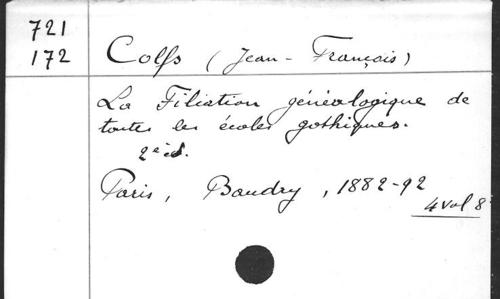 721
172
Colfs (Jean-François)
La Filiation généalogique de
toutes les écoles gothiques.
2e éd.
Paris, Baudry, 1882-92
4 vol 8°